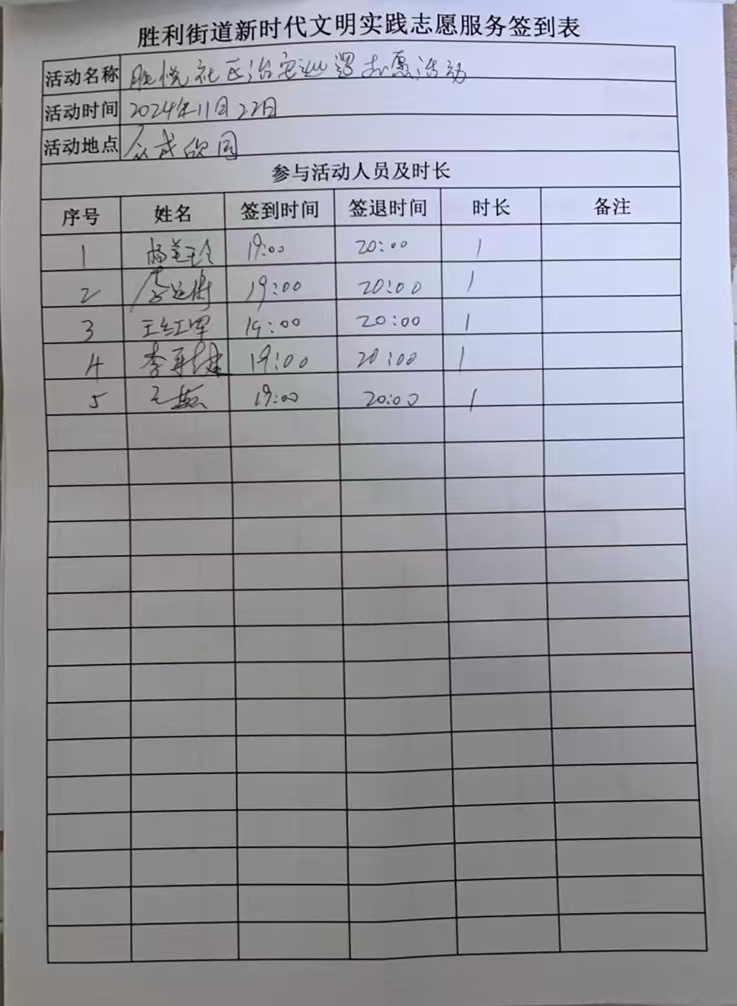 胜利街道新时代文明实践志愿服务签到表
活动名称 胜悦社区治安巡逻志愿活动
活动时间 2024年11月22日
活动地点 众成
参与活动人员及时长
序号 姓名 签到时间 签退时间 时长 备注
1 19:00 20:00 1
2 19:00 20:00 1
3 王红军 19:00 20:00 1
4 李 19:00 20:00 1
5 19:00 20:00 1